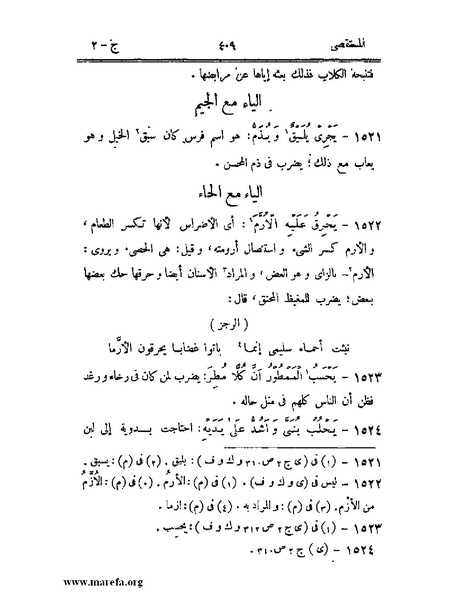 المستقصى ٤٠٩ ج - ٢
فتنبحه الكلاب فذلك بعثه إياها عن مرابضها .
الياء مع الجيم
١٥٢١ - يَجْرِى بُلَيْقٌ¹ وَ يُذَمُّ: هو اسم فرس كان سبق² الخيل و هو
يعاب مع ذلك؛ يضرب فى ذم المحسن .
الياء مع الحاء
١٥٢٢ - يَحْرِقُ عَلَيْهِ الْأُرَّمَ¹ : أى الأضراس لأنها تكسر الطعام ،
و الأرم كسر الشىء و استئصال أرومته ، و قيل: هى الحصى و يروى :
الأزم² - بالزاى و هو العض ، و المراد³ الأسنان أيضا و حرقها حك بعضها
بعض ؛ يضرب للمغيظ المحنق ، قال:
( الرجز )
نبئت أحماء سليمى إنما⁴ باتوا غضابا يحرقون الأرّما
١٥٢٣ - يَحْسَبُ الْمَمْطُورُ اَنَّ كُلًّا مُطِرَ: يضرب لمن كان فى رخاء و رغد
فظن أن الناس كلهم فى مثل حاله .
١٥٢٤ - يَحْلُبُ بُنَىَّ وَ اَشُدُّ عَلىٰ يَدَيْهِ: احتاجت بدوية إلى لبن
١٥٢١ - (١) فى (ى ج ٢ ص ٣١٠ و ك و ف) : بليق . (٢) فى (م) : يسبق .
١٥٢٢ - ليس فى (ى و ك و ف) . (١) فى (م) : الأرمُ . (٠) فى (م) : الْأُزَّمُ
من الأزْم . (٣) فى (م) : و المراد به . (٤) فى (م) : ازما .
١٥٢٣ - (١) فى (ى ج ٢ ص ٣١٢ و ك و ف) : يحسِب .
١٥٢٤ - (ى) ج ٢ ص ٣١٠ .
www.marefa.org